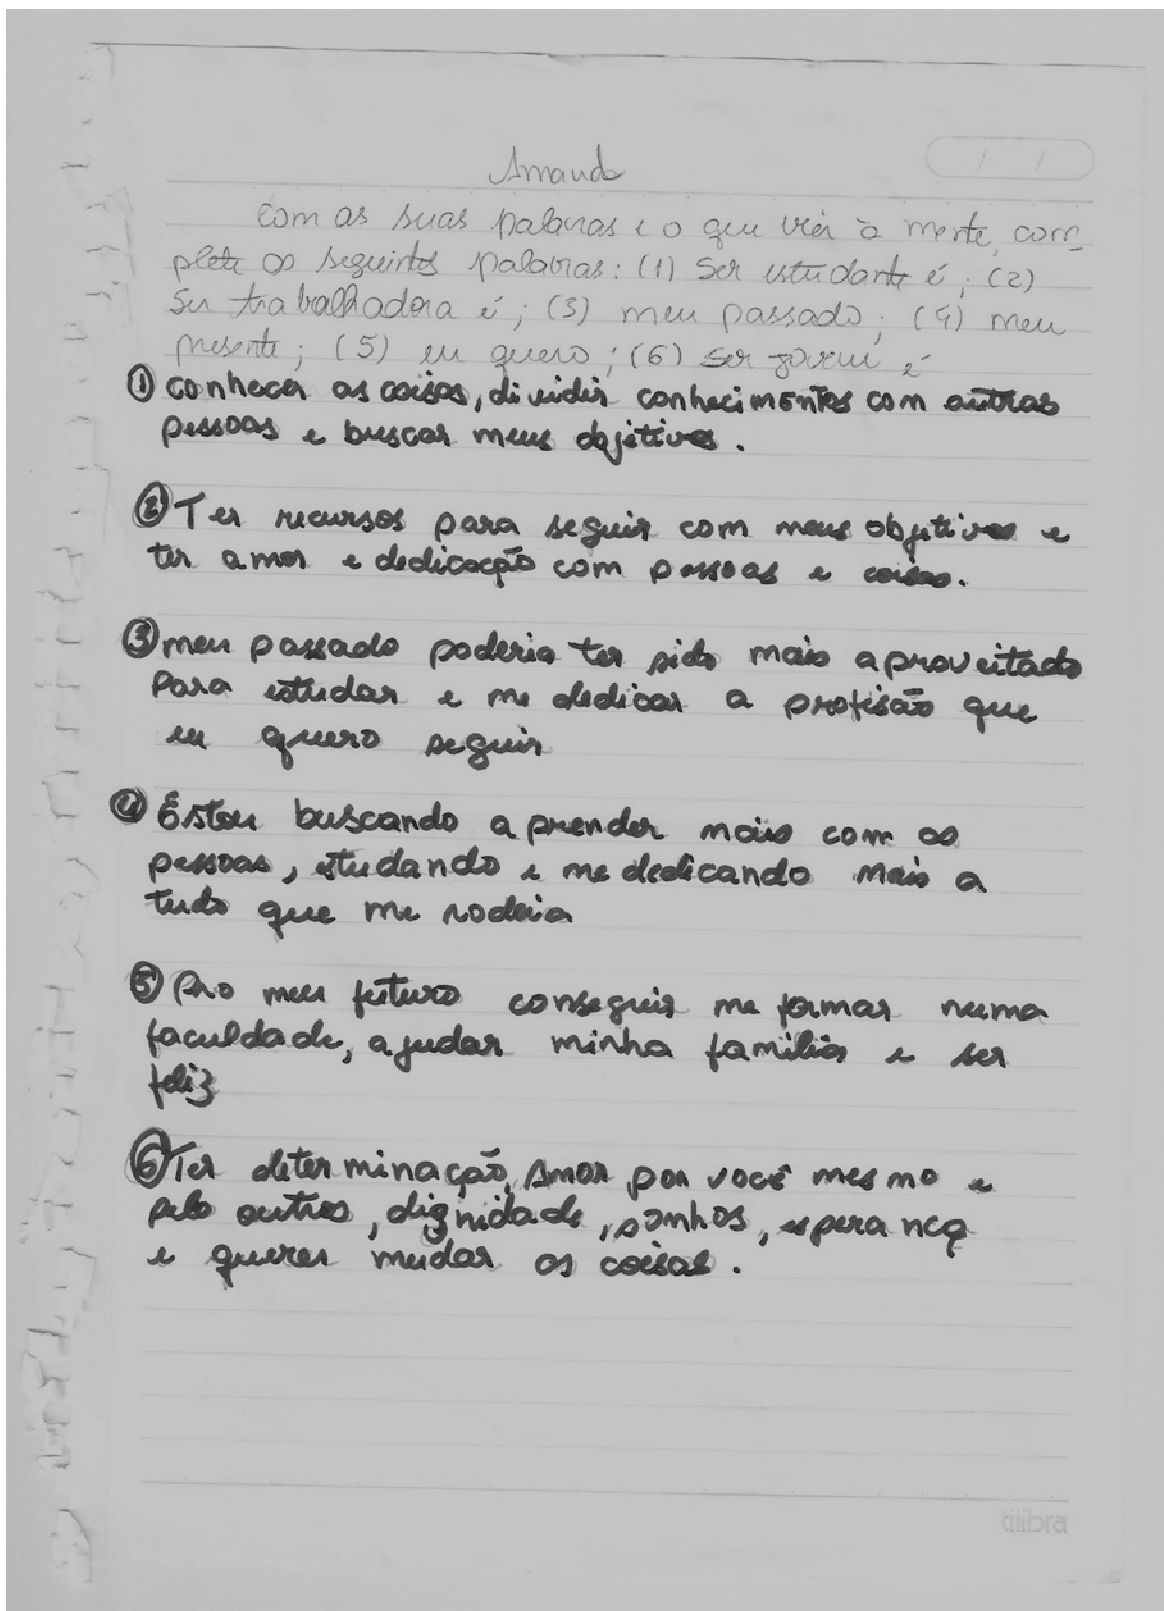 Amanda
com as suas palavras e o que vier à mente, com-
plete as seguintes palavras: (1) Ser estudante é; (2)
Ser trabalhadora é; (3) meu passado; (4) meu
presente; (5) eu quero; (6) ser jovem é
① conhecer as coisas, dividir conhecimentos com outras
pessoas e buscar meus objetivos.
② Ter recursos para seguir com meus objetivos e
ter amor e dedicação com pessoas e coisas.
③ meu passado poderia ter sido mais aproveitado
para estudar e me dedicar a profisão que
eu quero seguir
④ Estou buscando aprender mais com as
pessoas, estudando e me dedicando mais a
tudo que me rodeia
⑤ Pro meu futuro conseguir me formar numa
faculdade, ajudar minha familia e ser
feliz
⑥ Ter determinação, Amor por você mesmo e
pelo outros, dignidade, sonhos, esperança
e querer mudar as coisas.
tilibra